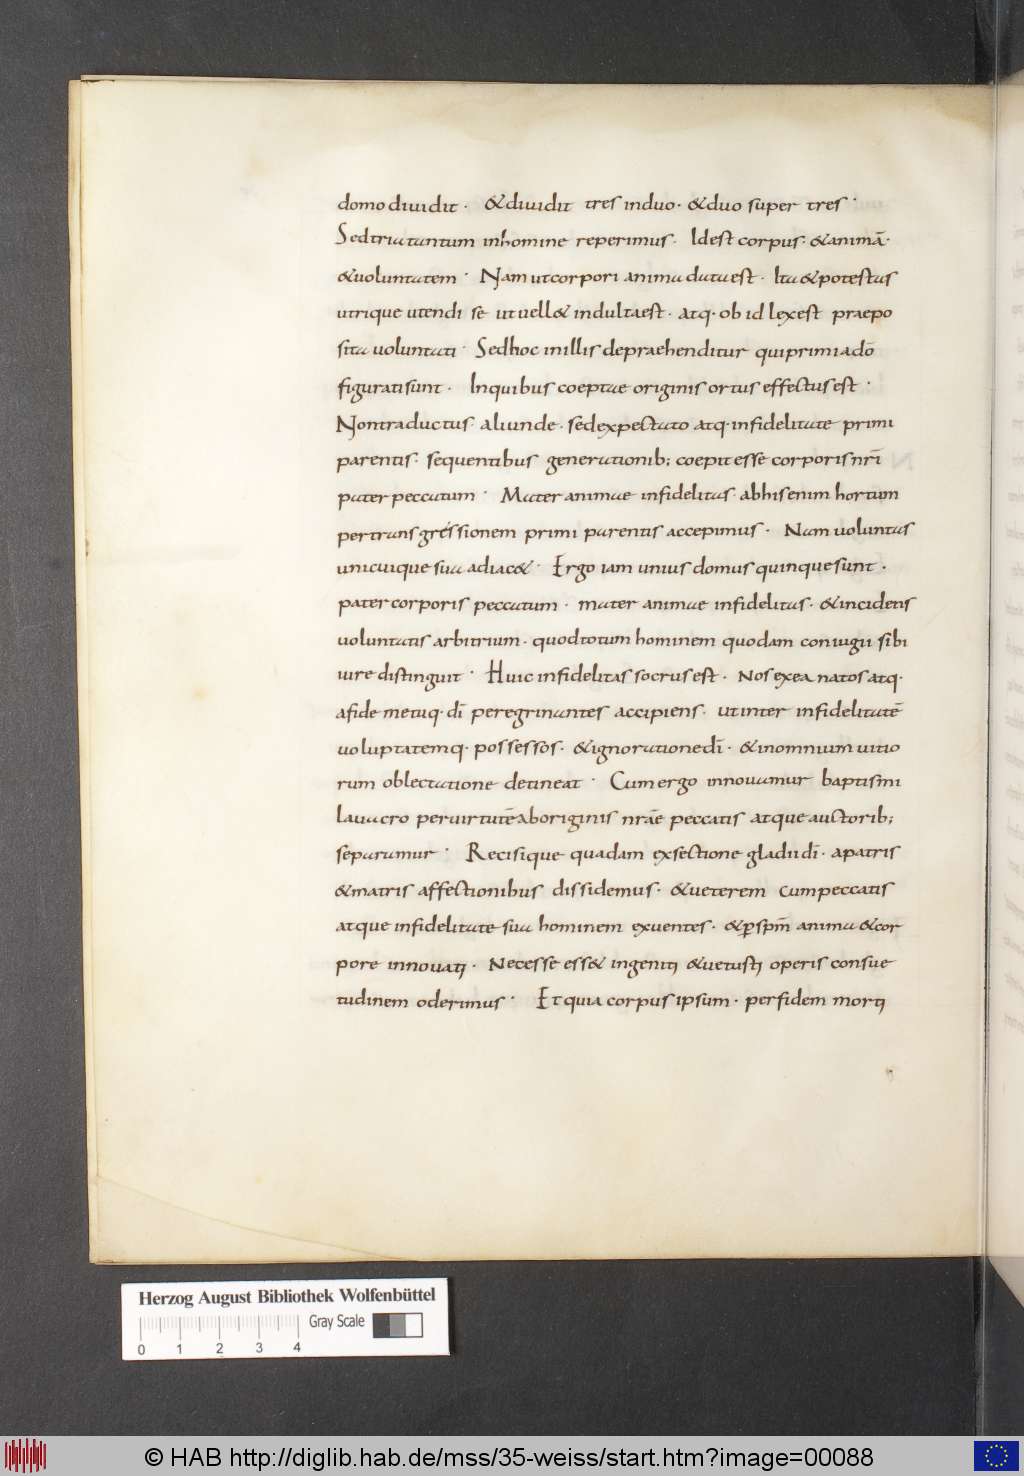 domo diuidit · & diuidit tres induo · & duo super tres ·
Sed tria tantum inhomine reperimus · Idest corpus · & animā ·
& uoluntatem · Nam ut corpori anima data est · Ita & potestas
utrique utendi se ut uell& indulta est · atq· ob id lex est praepo
sita uoluntati · Sed hoc in illis depraehenditur qui primi adō
figurati sunt · In quibus coeptae originis ortus effectus est ·
Non traductus · aliunde · sed expectato atq· infidelitate primi
parentis · sequentibus generationib; coepit esse corporis nrī
pater peccatum · Mater animae infidelitas · ab his enim hortum
per transgressionem primi parentis accepimus · Nam uoluntas
unicuique sua adiac& · Ergo iam unius domus quinque sunt ·
pater corporis peccatum · mater animae infidelitas · & incidetis
uoluntatis arbitrium · quod totum hominem quodam coniugii sibi
iure distinguit · Huic infidelitas socrus est · Nos ex ea natos atq·
a fide metuq· dī peregrinantes accipiens · ut inter infidelitatē
uoluptatemq· possessos · & ignoratione dī · & in omnium uitio
rum oblectatione detineat · Cum ergo innouamur baptismi
lauacro per uirtutē ab originis nrāe peccatis atque auctorib;
separamur · Recisique quadam exsectione gladii dī · a patris
& matris affectionibus dissidemus · & ueterem cum peccatis
atque infidelitate sua hominem exuentes · & ꝑ spm̄ anima & cor
pore innouati · Necesse ess& ingeniti & uetusti operis consue
tudinem oderimus · Et quia corpus ipsum · per fidem morti
Herzog August Bibliothek Wolfenbüttel
Gray Scale
0 1 2 3 4
© HAB http://diglib.hab.de/mss/35-weiss/start.htm?image=00088